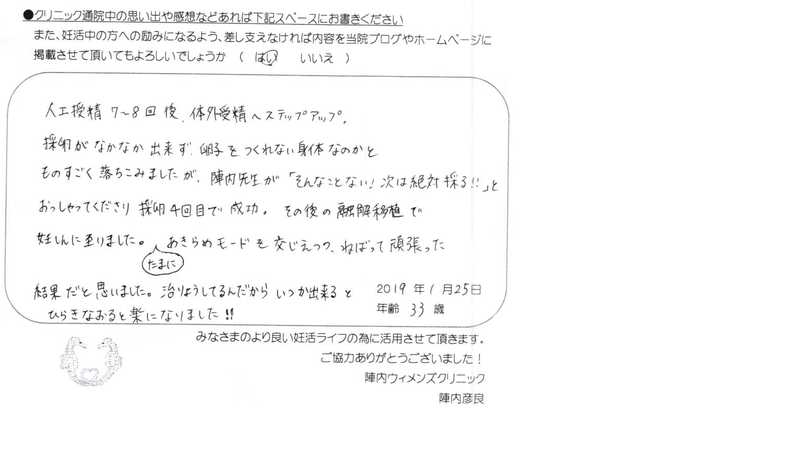 ●クリニック通院中の思い出や感想などあれば下記スペースにお書きください
また、妊活中の方への励みになるよう、差し支えなければ内容を当院ブログやホームページに
掲載させて頂いてもよろしいでしょうか（ はい　いいえ ）
人工授精 7〜8回後、体外受精へステップアップ。
採卵がなかなか出来ず、卵子をつくれない身体なのかと
ものすごく落ちこみましたが、陣内先生が「そんなことない！次は絶対採る!!」と
おっしゃってくださり 採卵4回目で成功。その後の融解移植で
妊しんに至りました。あきらめモードを交じえつつ、ねばって頑張った
たまに
結果だと思いました。治りょうしてるんだからいつか出来ると
ひらきなおると楽になりました!!
2019年1月25日
年齢 33 歳
みなさまのより良い妊活ライフの為に活用させて頂きます。
ご協力ありがとうございました！
陣内ウィメンズクリニック
陣内彦良